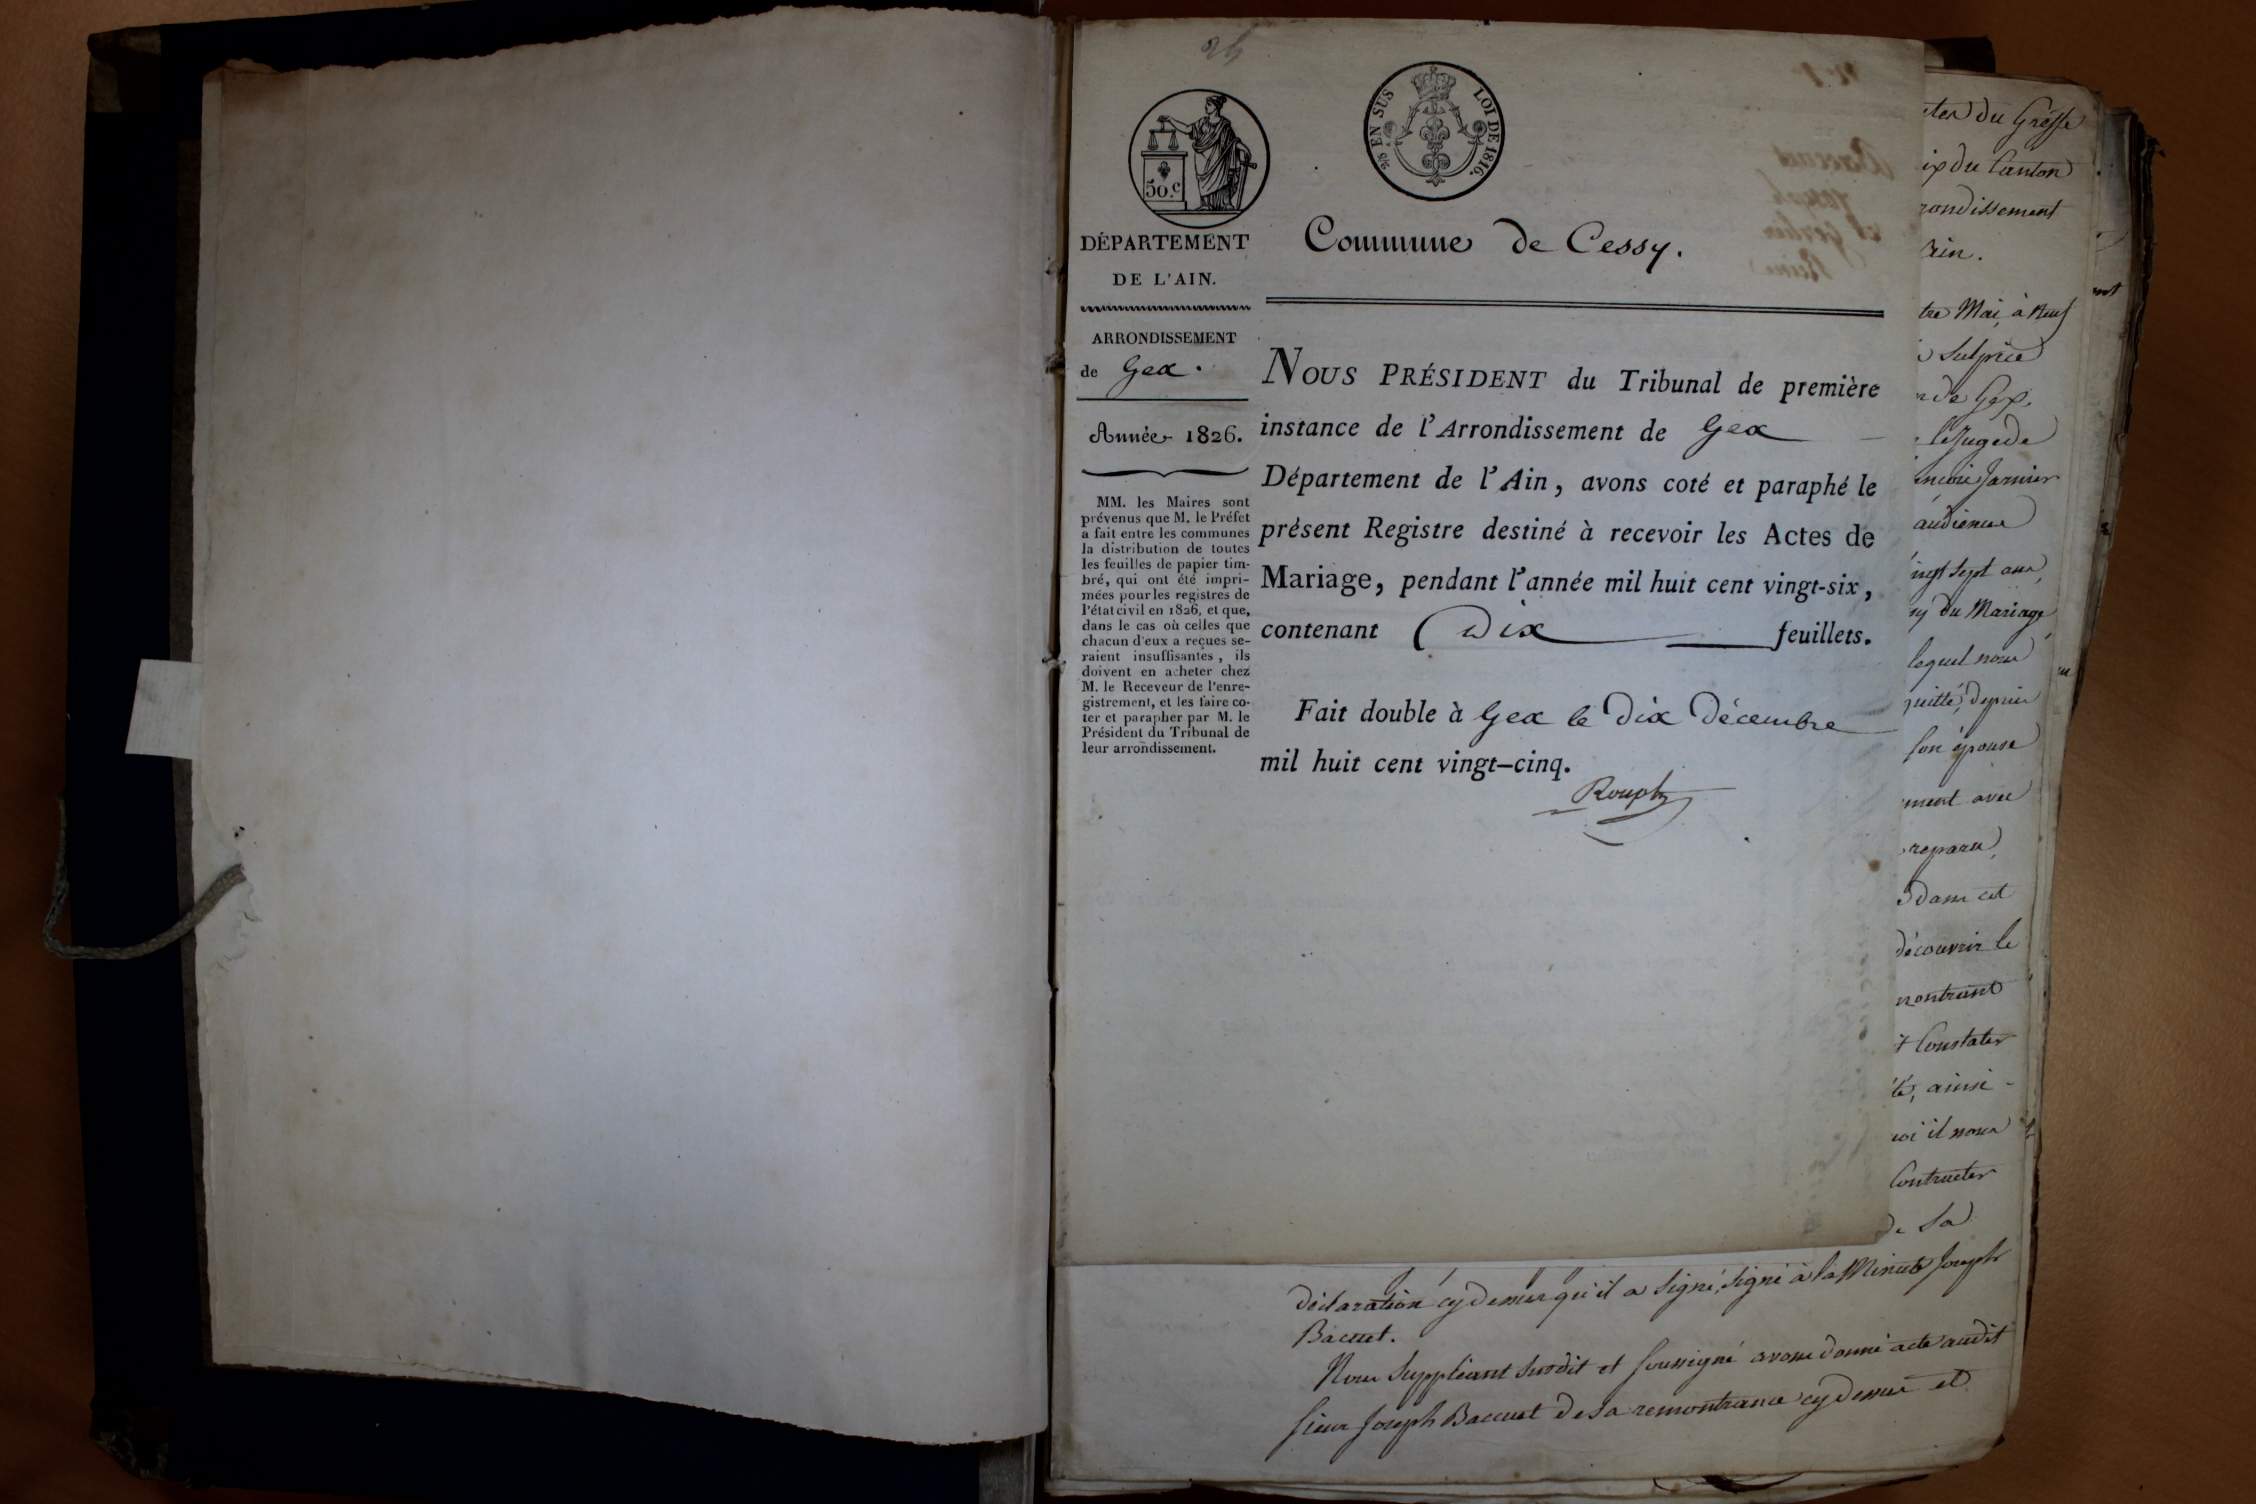 50.c
2/5 EN SUS LOI DE 1816.
DÉPARTEMENT
DE L'AIN.
ARRONDISSEMENT
de Gex.
Année 1826.
MM. les Maires sont
prévenus que M. le Préfet
a fait entre les communes
la distribution de toutes
les feuilles de papier tim-
bré, qui ont été impri-
mées pour les registres de
l'état civil en 1826, et que,
dans le cas où celles que
chacun d'eux a reçues se-
raient insuffisantes, ils
doivent en acheter chez
M. le Receveur de l'enre-
gistrement, et les faire co-
ter et parapher par M. le
Président du Tribunal de
leur arrondissement.
Commune de Cessy.
NOUS PRÉSIDENT du Tribunal de première
instance de l'Arrondissement de Gex
Département de l'Ain, avons coté et paraphé le
présent Registre destiné à recevoir les Actes de
Mariage, pendant l'année mil huit cent vingt-six,
contenant Dix feuillets.
Fait double à Gex le Dix Décembre
mil huit cent vingt-cinq.
du Greffe
du Canton
rondissement
ain.
Mai, à neuf
Sulpice
de Gex,
le Juge de
audience
vingt sept ans,
du Mariage
lequel nous
quitté, depuis
son épouse
ment avec
reparu,
dans cet
découvrir le
montrant
Constater
ainsi
il nous
Contracter
de sa
déclaration cy dessus qu'il a signé, signé à la Minute Joseph
Bacuet.
Nous Suppléant susdit et soussigné avons donné acte audit
sieur Joseph Bacuet de sa remontrance cy dessus et